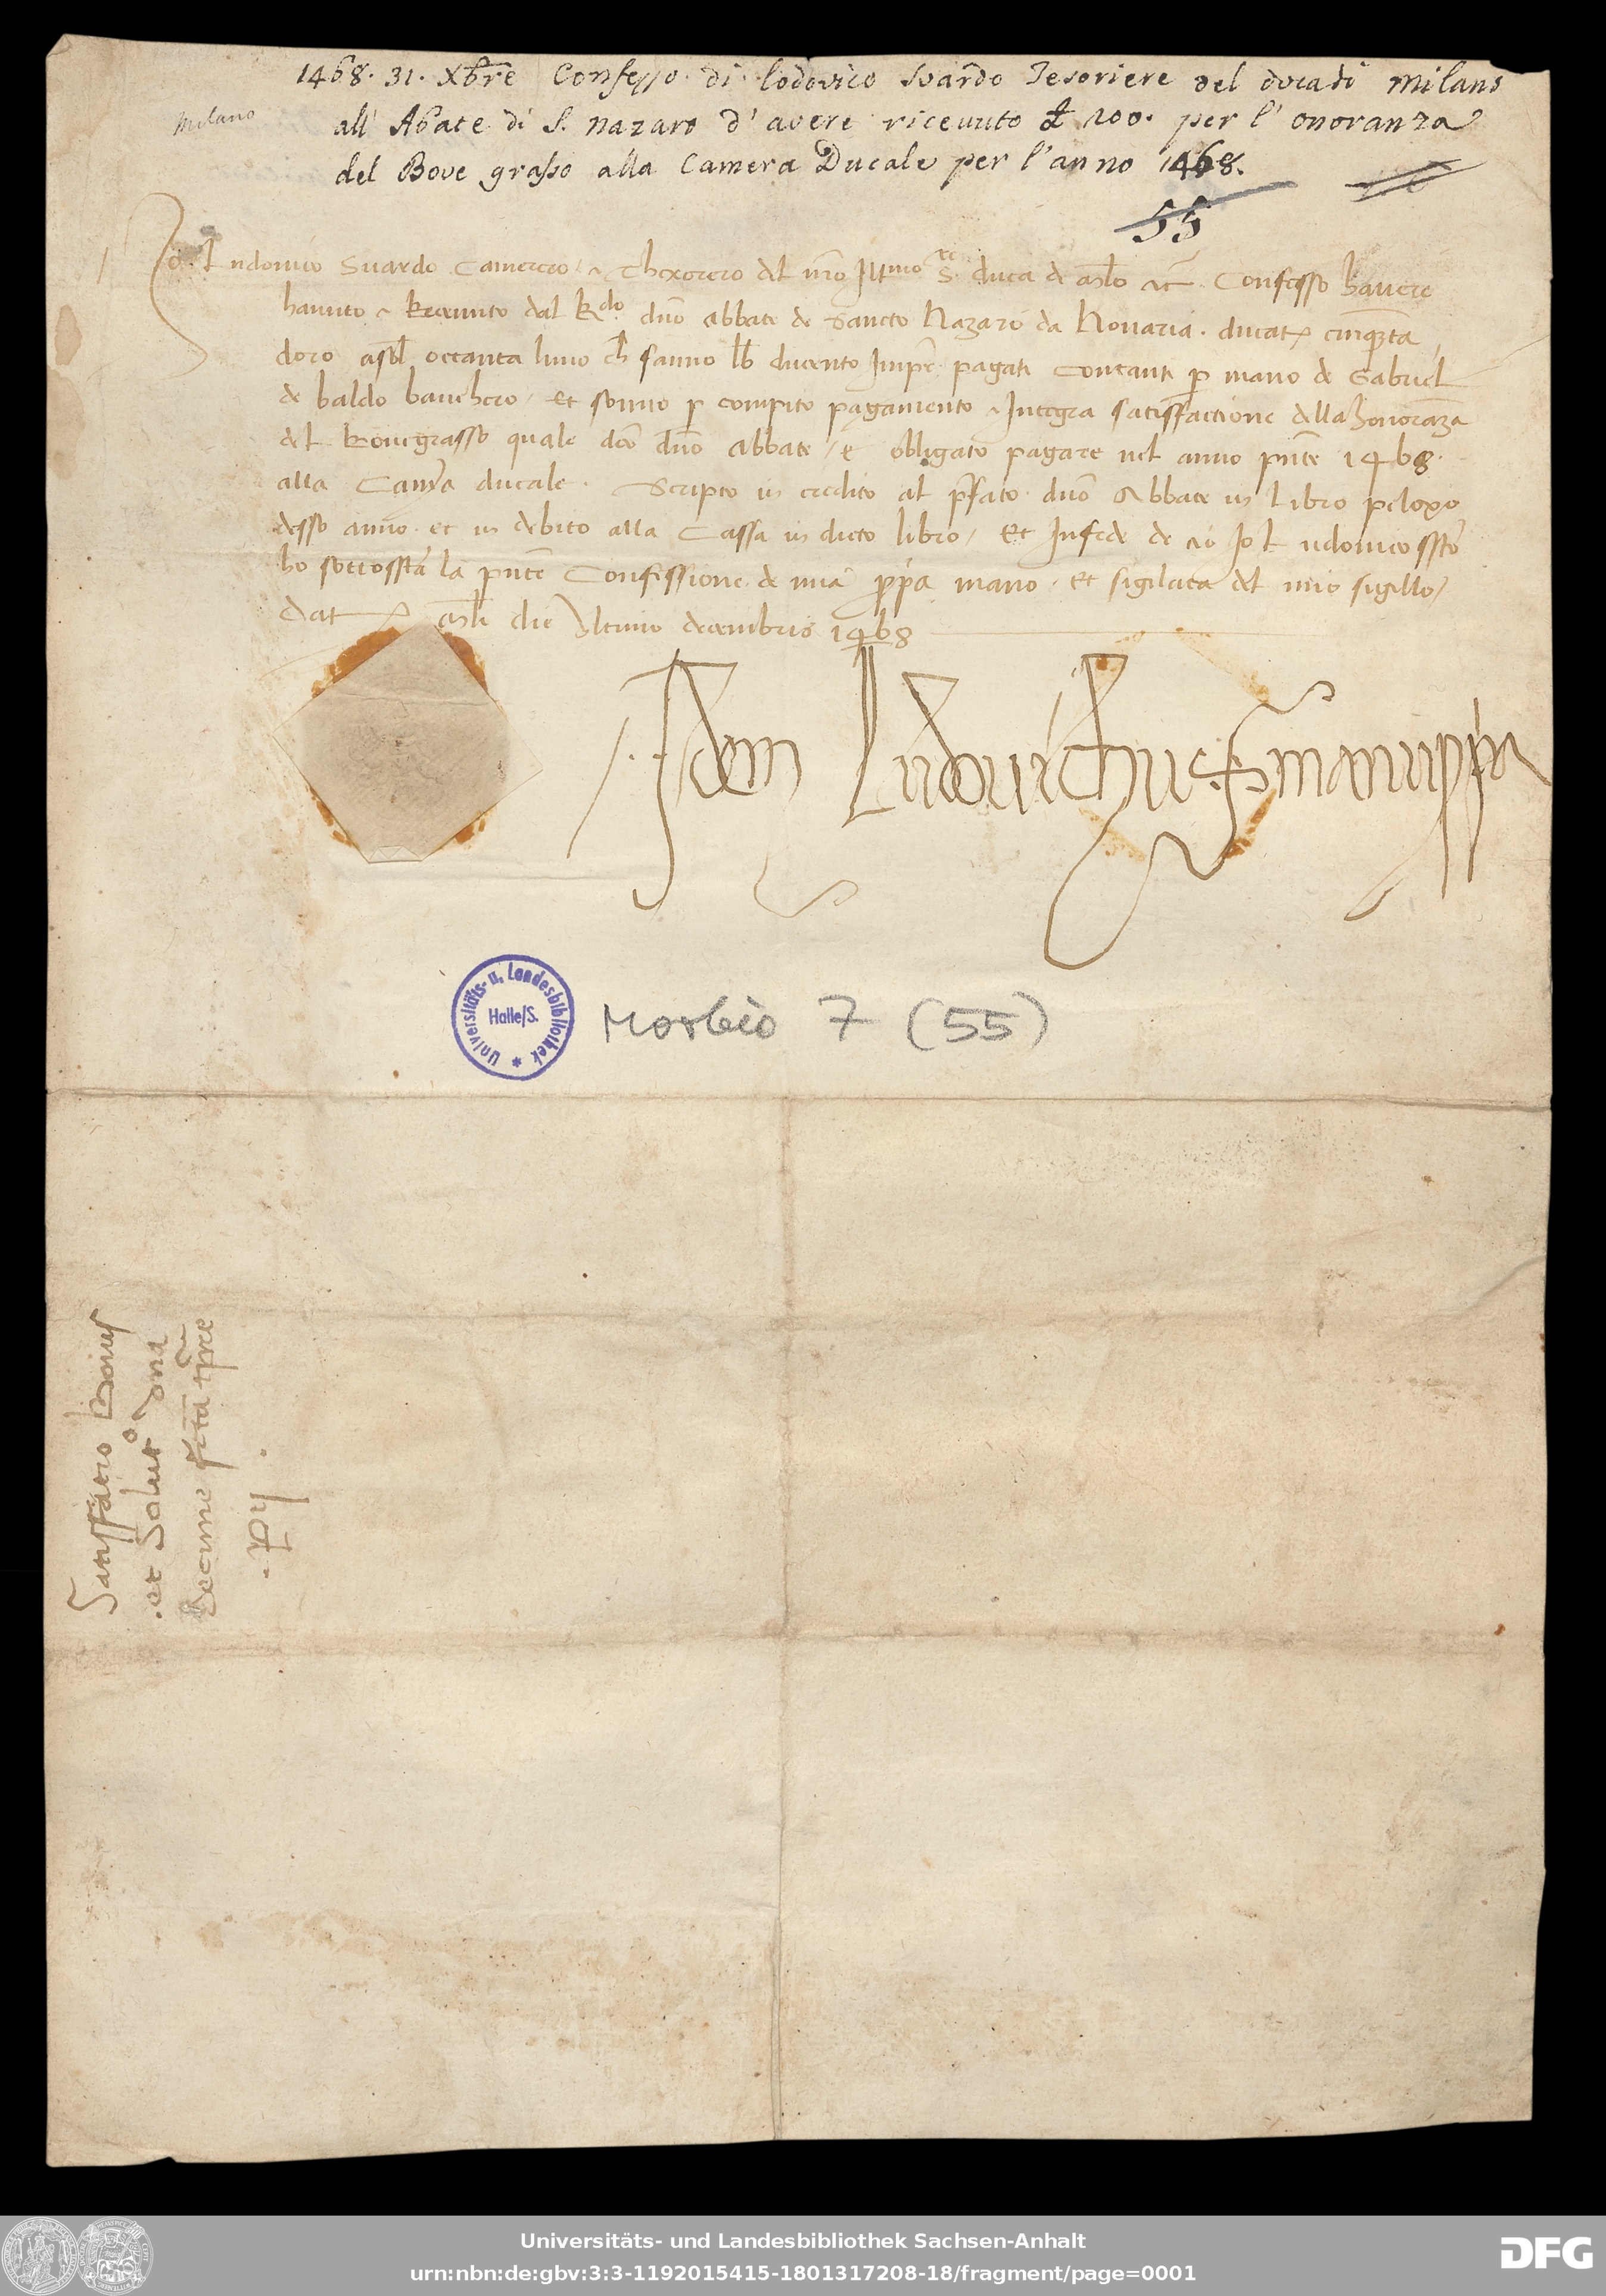 1468. 31. Xbre Confesso di lodovico Svardo Tesoriere del ducadi Milano
Milano
all' Abate di S. Nazaro d' avere ricevuto £ 200. per l' onoranza
del Bove grasso alla Camera Ducale per l'anno 1468.
55
Io. Ludovico Suardo Camerero ⁊ Thexorero del nr̄o Illmo S. duca de Mlo ⁊c̄ Confesso havere
havuto ⁊ Recevuto dal Rdo. duo abbate de Sancto Nazaro da Novaria. ducat cinqͣnta
doro a sol octanta luno ch fanno lb ducento Imper pagati Contanti p mano de Gabriel
de baldo banchero. et sonno p compito pagamento ⁊ Integra satisfactione della honoranza
del Bove grasso quale dc̄o duo abbate, e obligato pagare nel anno pn̄te 1468.
alla Camera ducale. Scripto in credito al pfato duo Abbate in Libro peloxo
desso anno et in debito alla Cassa in dicto libro, Et Infede de ciò Io Ludovico sst̄o
ho sottosstā la pn̄te Confessione de mia p̄p̄a mano. et sigilata del mio sigillo,
Dat Mli die Ultimo decembris 1468
Idem Ludovichus ss manu ppa
Universitäts- u. Landesbibliothek
Halle/S.
Morbio 7 (55)
et Solut
Universitäts- und Landesbibliothek Sachsen-Anhalt
urn:nbn:de:gbv:3:3-1192015415-1801317208-18/fragment/page=0001
DFG